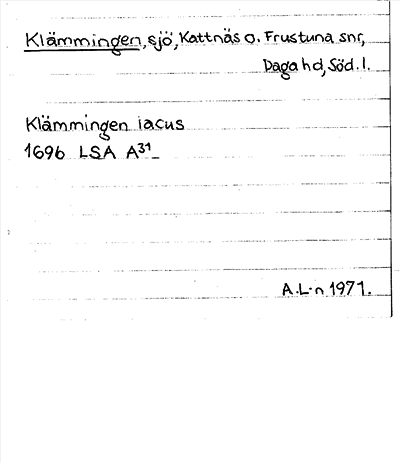 Klämmingen, sjö, Kattnäs o. Frustuna snr,
Daga hd, Söd. l.
Klämmingen iacus
1696 LSA A³¹
A.L-n 1971.